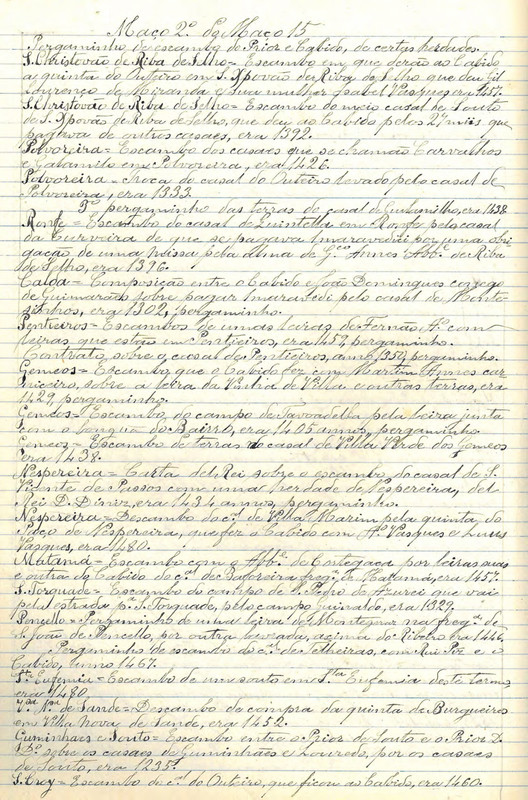 Maço 2º do Maço 15
Pergaminho de escambo do Prior e Cabido, de certas herdades.
S. Christovão de Riba de Selho = Escambo em que derão ao Cabido
a quinta do Outeiro em S. Xpovão da Riba de Selho que deu Gil
Lourenço de Miranda e sua mulher Isabel Vasques era 1457.
S. Christovão de Riba de Selho = Escambo do meio casal de Souto
de S. Xpovão de Riba de Selho, que deu ao Cabido pelos 27 mrs que
pagava de outros casaes, era 1392.
Polvoreira = Escambo dos casaes que se chamão Carvalhos
e Galamilo em Polvoreira, era 1426.
Polvoreira = troca do casal do Outeiro levado pelo casal de
Polvoreira, era 1333.
3º pergaminho das terras do casal de era 1438.
Ronfe = Escambo do casal de Quintella em Ronfe pelo casal
da Cerveira de que se pagava 1 maravedi por uma obri-
gação de uma missa pela alma de Gº Annes Abbe. de Riba
de Selho, era 1396.
Calda = Composição entre o Cabido e João Domingues conego
de Guimarães sobre pagar 1 maravedi pelo casal de Monte-
sinhos, era 1302, pergaminho.
Pentieiros = Escambos de umas leiras de Fernão Aº. com
leiras que estão em Pentieiros, era 1457, pergaminho.
Contrato sobre o casal de Pentieiros, anno 1350, pergaminho.
Gemeos = Escambo que o Cabido fez com Martim Annes car-
niceiro, sobre a leira da Vinha de Villa e outras terras, era
1429, pergaminho.
Gemeos = Escambo, do campo de Tavoadella pela leira junta
com o do Bairro, era 1405 annos, pergaminho.
Gemeos = Escambo de terras do casal de Villa Verde dos Gemeos
era 1438.
Nespereira = Carta del Rei sobre o escambo do casal de S.
Vicente de Passos com uma herdade de Nespereira, del
Rei D. Diniz, era 1434 annos, pergaminho.
Nespereira = Descambo do cal. de Villa Marim pela quinta do
Paço de Nespereira, que fez o Cabido com Aº. Vasques e Luis
Vasques, era 1480.
Matamá = Escambo com o Abbe. de Cortegaça por leiras suas
e outra do Cabido do cal. de freg. de Matamá, era 1457.
S. Torquade = Escambo do campo de S. Pedro de Azurei que vai
pela estrada p. S. Torquade, pelo campo guinaldo, era 1329.
Pencello = Pergaminho de uma leira de Montezinar na fregª. de
S. João de Pencello, por outra acima do Ribeiro era 1446.
Pergaminho de escambo do cal. de Telheiras, com Rui Piz e o
Cabido, anno 1467.
Sta. Eufemia = Escambo de um souto em Sta Eufemia deste termo,
era 1480.
Vª. Nª. de Sande = Descambo da compra da quinta de Burgueiros
em Villa Nova de Sande, era 1452.
Guminhaes e Souto = Escambo entre o Prior de Souto e o Prior D.
Pº. sobre os casaes de Guminhães e Louredo, por os casaes
de Souto, era 1235.
S. Croy = Escambo do cal. do Outeiro, que ficou ao Cabido, era 1460.